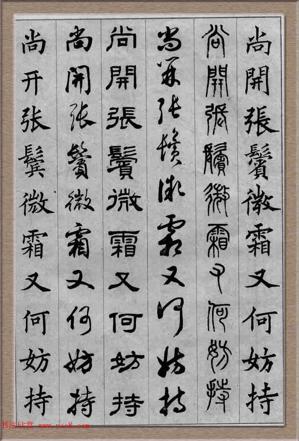 尚開張鬢微霜又何妨持
尚開張鬢微霜又何妨持
尚開張鬢微霜又何妨持
尚開張鬢微霜又何妨持
尚開張鬢微霜又何妨持
尚开张鬓微霜又何妨持